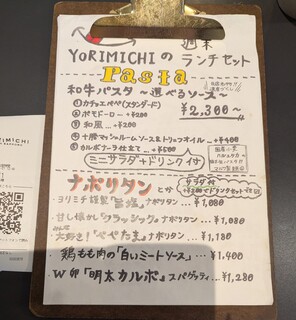 週末
YORIMICHIの ランチセット
Pasta
和牛パスタ 〜選べるソース〜
¥2,300〜
①カチョエペペ(スタンダード)
②ポモドーロ … +¥200
③和風 … +¥200
④十勝マッシュルームソース&トリュフオイル … +¥400
⑤カルボナーラ仕立て … +¥500
ミニサラダ+ドリンク付
ナポリタン とか
サラダ付
ヨリミチ謹製「旨塩」ナポリタン … ¥1,080
甘し懐かし「クラッシック」ナポリタン … ¥1,080
大好き!「ぺぺたま」ナポリタン … ¥1,180
鶏もも肉の「白いミートソース」 … ¥1,400
W卵「明太カルボ」スパゲッティ … ¥1,280
YORIMICHI